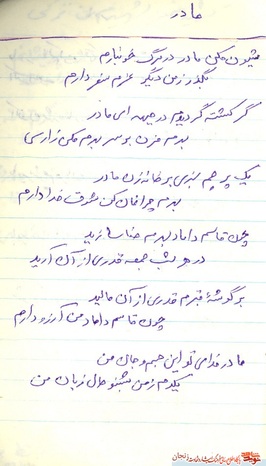 مادر
شیون مکن مادر در مرگ خونبارم
بگذر ز من دیگر عزم سفر دارم
گر کشته گردیدم در جبهه ای مادر
بهرم مزن بر سر بهرم مکن زاری
یک پرچم سبزی بر خانه زن مادر
بهرم چراغان کن شوق خدا دارم
چون قاسم داماد بهرم حنا سازید
در هر شب جمعه قدری از آن آرید
بر گوشهٔ قبرم قدری از آن مالید
چون قاسم داماد من آرزو دارم
مادر فدای تو این جسم و جان من
یکدم ز من بشنو حال زبان من